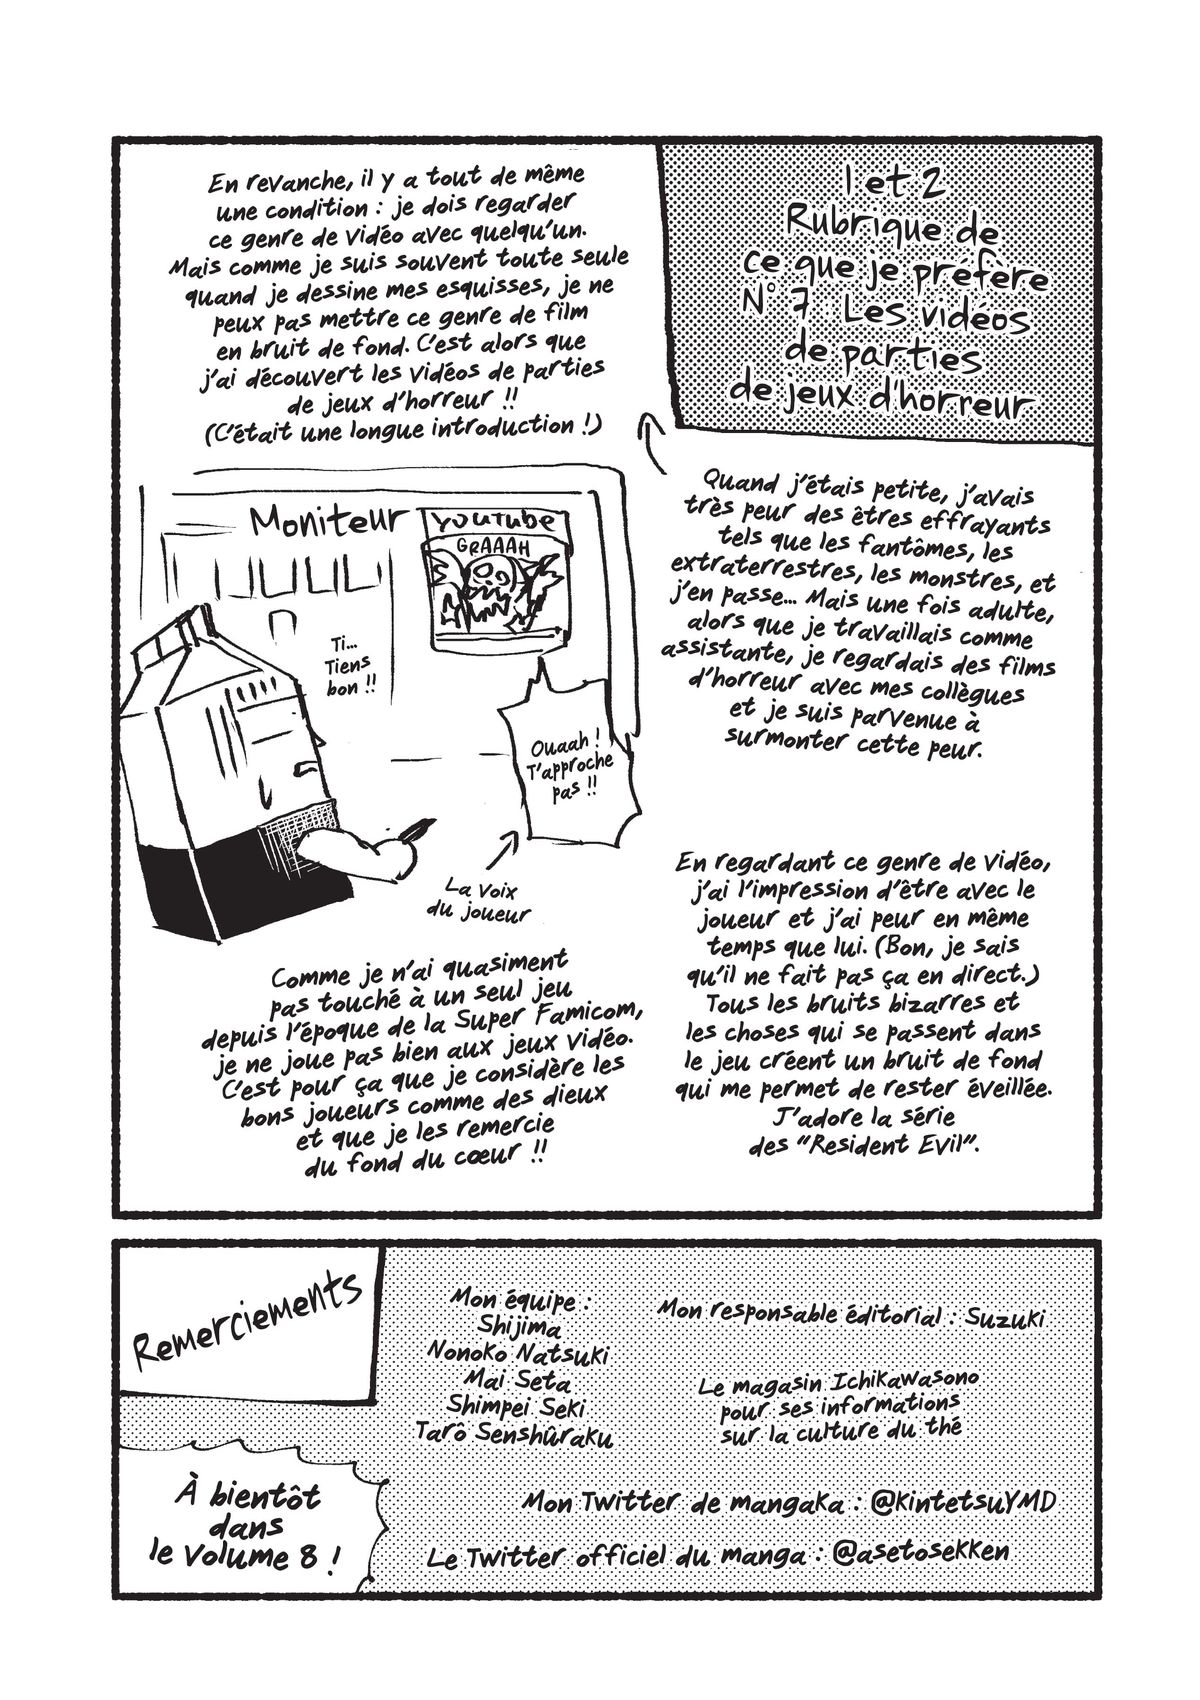 1 et 2
Rubrique de
ce que je préfère
N° 7 : Les vidéos
de parties
de jeux d'horreur
Quand j'étais petite, j'avais
très peur des êtres effrayants
tels que les fantômes, les
extraterrestres, les monstres, et
j'en passe... Mais une fois adulte,
alors que je travaillais comme
assistante, je regardais des films
d'horreur avec mes collègues
et je suis parvenue à
surmonter cette peur.
En revanche, il y a tout de même
une condition : je dois regarder
ce genre de vidéo avec quelqu'un.
Mais comme je suis souvent toute seule
quand je dessine mes esquisses, je ne
peux pas mettre ce genre de film
en bruit de fond. C'est alors que
j'ai découvert les vidéos de parties
de jeux d'horreur !!
(C'était une longue introduction !)
Moniteur
YOUTUBE
GRAAAH
Ti...
Tiens
bon !!
Ouaah !
T'approche
pas !!
La voix
du joueur
En regardant ce genre de vidéo,
j'ai l'impression d'être avec le
joueur et j'ai peur en même
temps que lui. (Bon, je sais
qu'il ne fait pas ça en direct.)
Tous les bruits bizarres et
les choses qui se passent dans
le jeu créent un bruit de fond
qui me permet de rester éveillée.
J'adore la série
des "Resident Evil".
Comme je n'ai quasiment
pas touché à un seul jeu
depuis l'époque de la Super Famicom,
je ne joue pas bien aux jeux vidéo.
C'est pour ça que je considère les
bons joueurs comme des dieux
et que je les remercie
du fond du cœur !!
Remerciements
Mon équipe :
Shijima
Nonoko Natsuki
Mai Seta
Shimpei Seki
Tarô Senshûraku
Mon responsable éditorial : Suzuki
Le magasin Ichikawasono
pour ses informations
sur la culture du thé
Mon Twitter de mangaka : @kintetsuYMD
Le Twitter officiel du manga : @asetosekken
À bientôt
dans
le volume 8 !